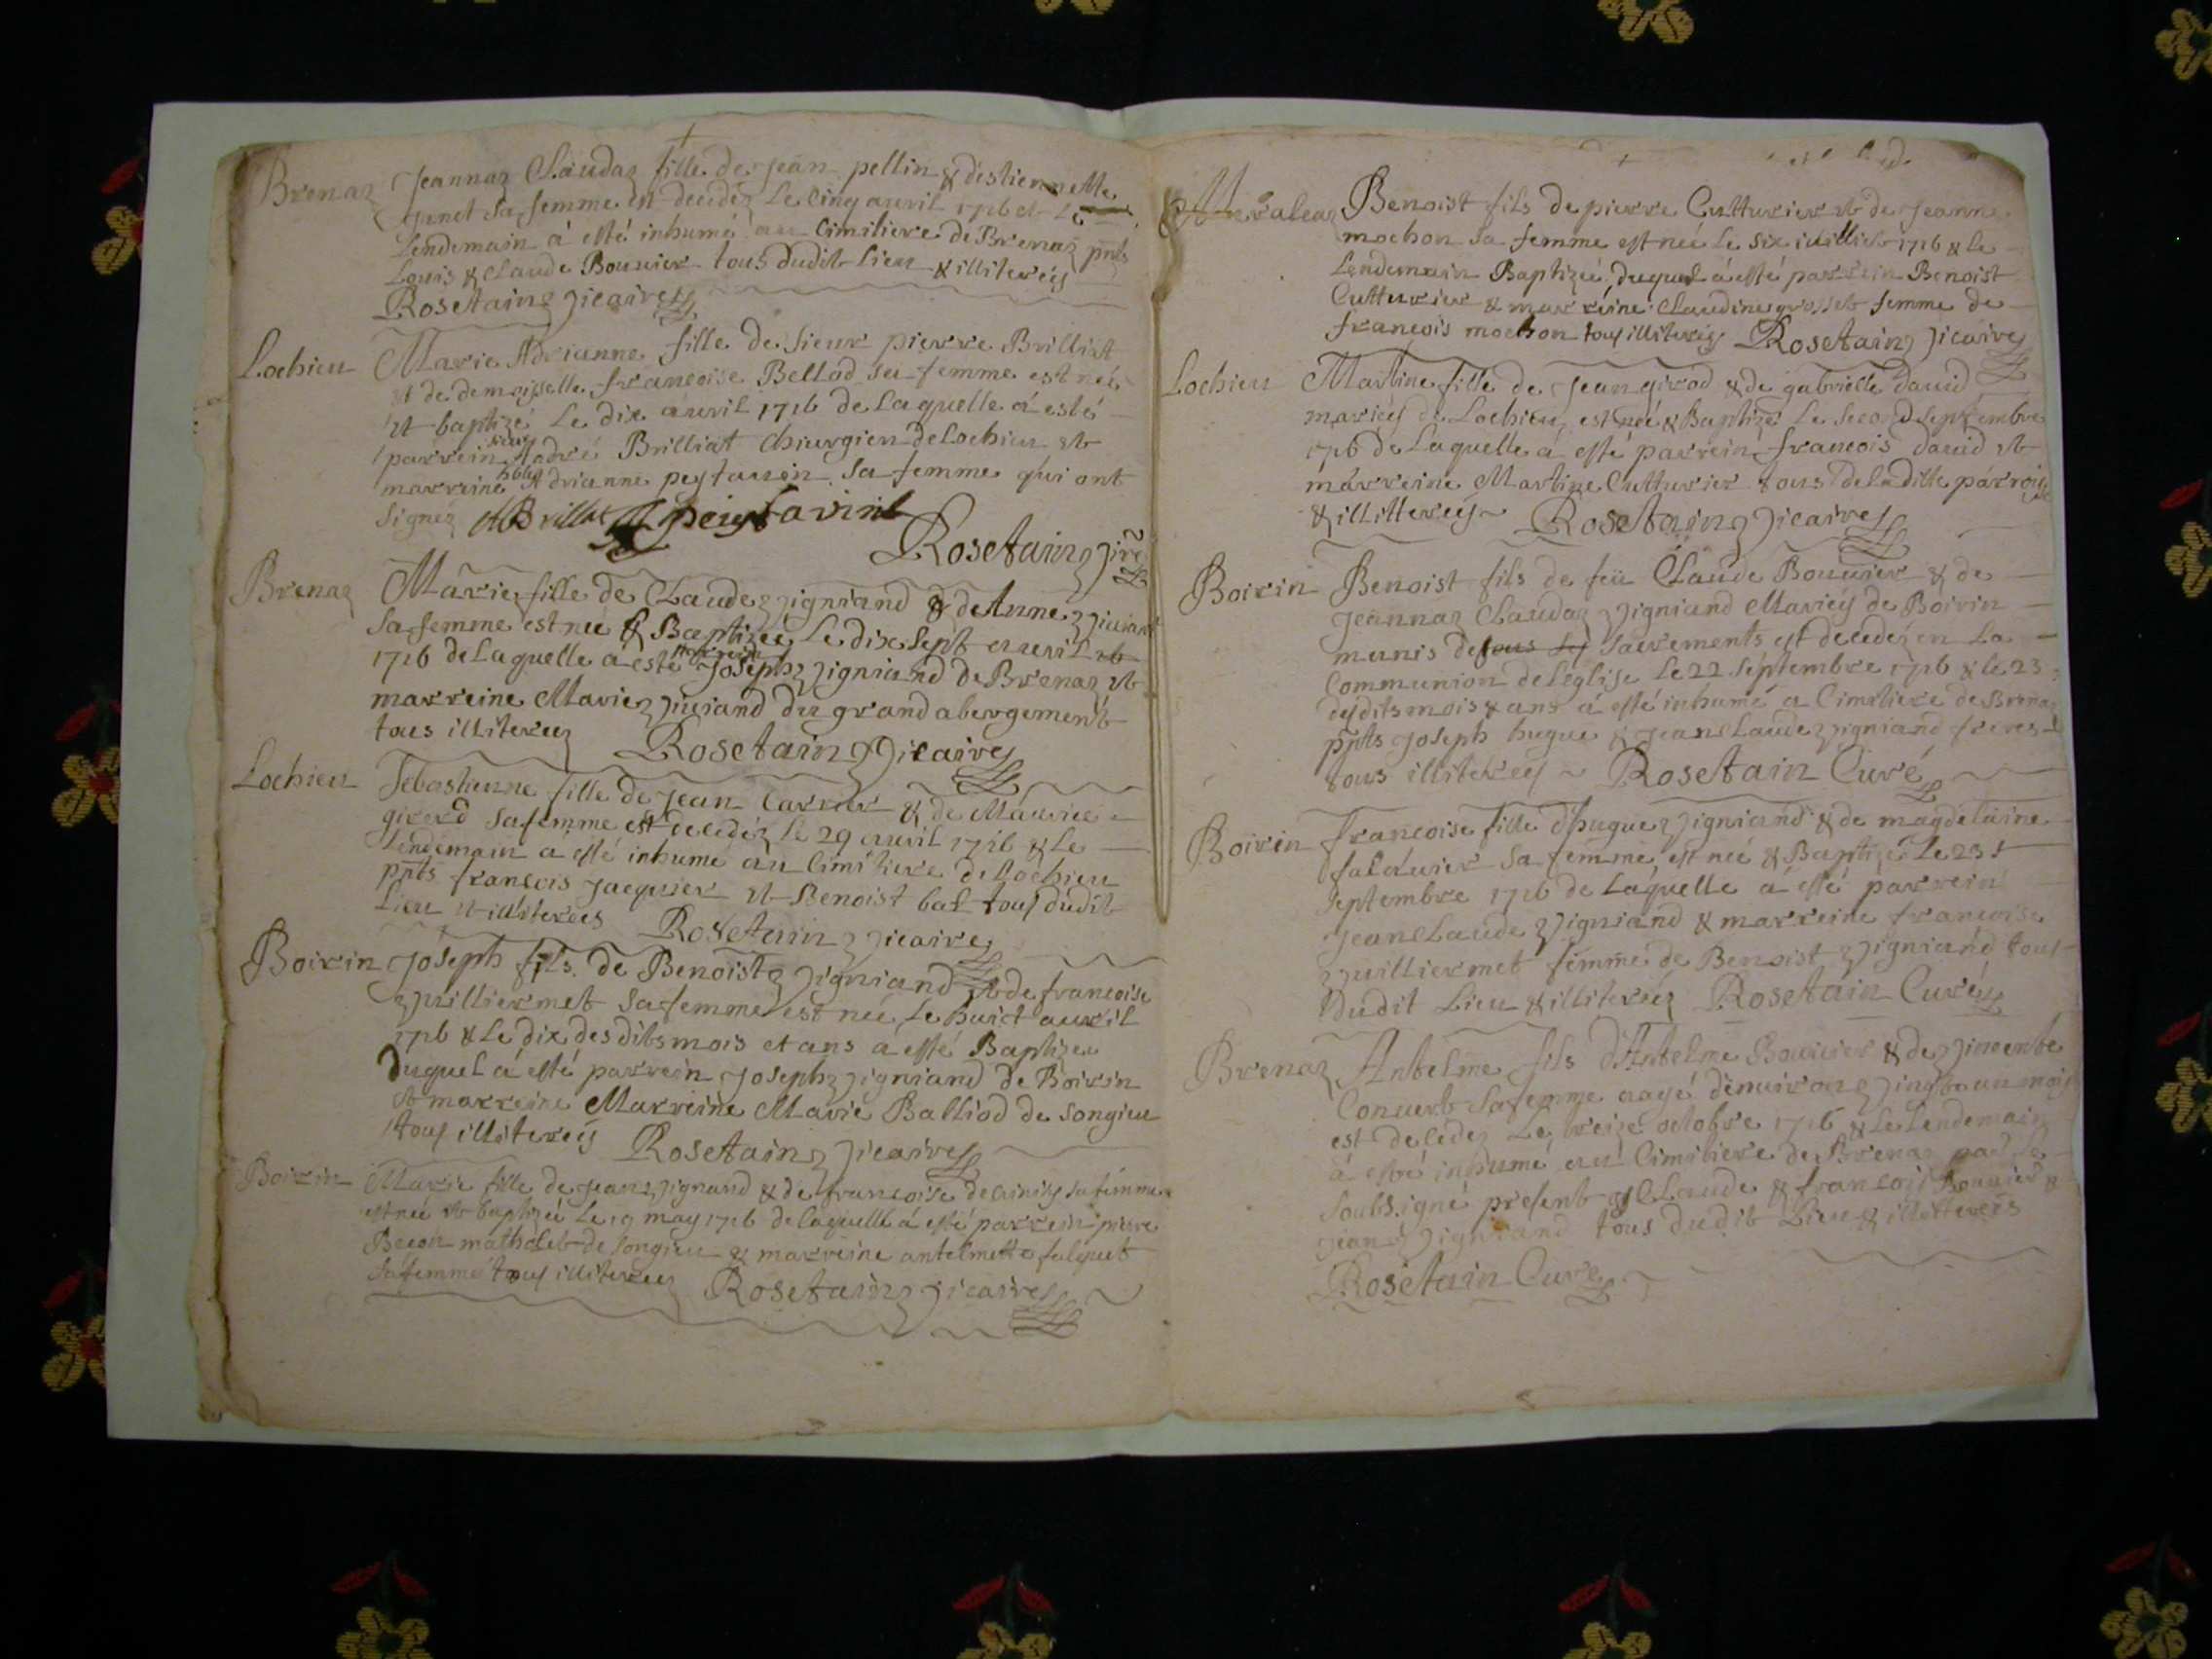 Brenaz Jeannaz Claudaz fille de Jean pellin & destiennette
Junet sa femme est decedéz Le cinq auril 1716 et Le
Lendemain á esté inhumé au Cimitiere de Brenaz pnts
Louis & Claude Bouuier tous dudit Lieu & illiterés
Rosetain vicaire
Lochieu Marie Adrianne fille de sieur pierre Brilliat
et de demoiselle francoise Bellod sa femme est née
et baptizé Le dix auril 1716 de Laquelle á esté
parrein sieur André Brilliat Chirurgien de Lochieu et
marreine Adrianne peytauin sa femme qui ont
signéz ABrilliat peiytavint
Rosetain vire
Brenaz Marie fille de Claude vigniand & de Anne
sa femme est neé & Baptizeé Le dix sept auril et
1716 de Laquelle á esté parrein Joseph vigniand de Brenaz et
marreine Marie viuiand du grand abergement
tous illiterez Rosetain vicaire
Lochieu Sebastienne fille de Jean Carrier & de Maurice
girerd sa femme est decedéz le 29 auril 1716 & Le
Lendemain a esté inhumé au Cimitiere de Lochieu
pnts francois Jacquier et Benoist bal tous dudit
Lieu et illiterées Rosetain vicaire
Boirin Joseph fils de Benoist vigniand et de francoise
vuilliermet sa femme est neé Le huict auril
1716 & Le dix desdits mois et ans a esté Baptizer
Duquel á esté parrein Joseph vigniand de Boirin
et marreine Marreine Marie Balliod de songieu
tous illiterés Rosetain vicaire
Boirin Marie fille de Jean vignand & de francoise sa femme
est neé et baptizeé Le 19 may 1716 de laquelle á esté parrein pierre
Beeon de songieu & marreine antelmette falquet
sa femme tous illiterez Rosetain vicaire
Benoist fils de pierre Cutturier et de Jeanne
mochon sa femme est neé Le six iuilliet 1716 & Le
Lendemain Baptizeé duquel á esté parrein Benoist
Cutturier & marreine Claudine grosset femme de
francois mochon tous illiterés Rosetain vicaire
Lochieu Martine fille de Jean girod & de gabrielle dauid
mariés de Lochieu est neé & Baptizé Le second septembre
1716 de Laquelle á esté parrein francois dauid et
márreine Martine Cutturier tous de la ditte párroisse
& illitterés Rosetain vicaire
Boirin Benoist fils de feü Claude Bouuier & de
Jeannaz Claudaz vigniand Mariés de Boirin
munis de tous les sacrements est decedéz en La
Communion de l'eglise Le 22 septembre 1716 & le 23
desdits mois & ans á esté inhumé a Cimitiere de Brenaz
pnts Joseph hugue & Jean Claude vigniand freres
tous illiterés Rosetain Curé
Boirin francoise fille d'hugue vigniand & de magdelaine
falauier sa femme est neé & Baptizé Le 23
septembre 1716 de Laquelle á esté parrein
Jean Claude vigniand & marreine francoise
vuilliermet femme de Benoist vigniand tous
Dudit Lieu & illiterés Rosetain Curé
Brenaz Antelme fils d'Antelme Bouuier & de vincente
Conuert sa femme aagé denuiron vingt un mois
est decedez Le treize octobre 1716 & Le Lendemain
á esté inhumé au Cimitiere de Brenaz par le
soubsigné present Claude & francois Bouuier &
Jean vigniand tous dudit Lieu & illitterés
Rosetain Curé